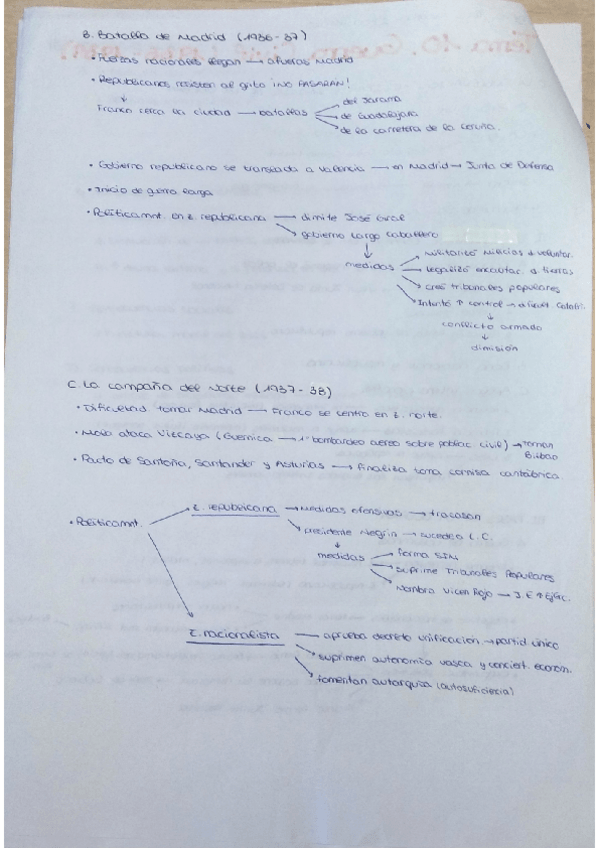 B. Batalla de Madrid (1936-37)
• Fuerzas nacionales llegan → afueras Madrid
• Republicanos resisten al grito ¡NO PASARÁN!
↓
Franco cerca la ciudad → batallas
del Jarama
de Guadalajara
de la carretera de la Coruña.
• Gobierno republicano se translada a Valencia → en Madrid → Junta de Defensa
• Inicio de guerra larga
• Políticamnt. en z. republicana → dimite José Giral
→ gobierno Largo Caballero
↓
medidas
militarizó milicias d voluntar.
legalizó encautac. d tierras
creó tribunales populares
Intentó ↑ control → dificult. Catalñ.
↓
conflicto armado
↓
dimisión
C. La campaña del Norte (1937-38)
• Dificultad tomar Madrid → Franco se centró en z. norte.
• Mola ataca Vizcaya (Guernica → 1º bombardeo aéreo sobre poblac. civil) → toman
Bilbao
• Pacto de Santoña, Santander y Asturias → finaliza toma cornisa cantábrica.
• Políticamnt.
z. republicana → medidas ofensivas → fracasan
→ presidente Negrín → sucedió L.C.
↓
medidas
forma SIM
suprime Tribunales Populares
Nombra Vicen Rojo → J.E.↑ Ejérc.
z. nacionalista → aprueba decreto unificación → partid. único
suprimen autonomía vasca y conciert. económ.
fomentan autarquía (autosuficiecia)
Tema 10. Guerra Civil (1936-1939)